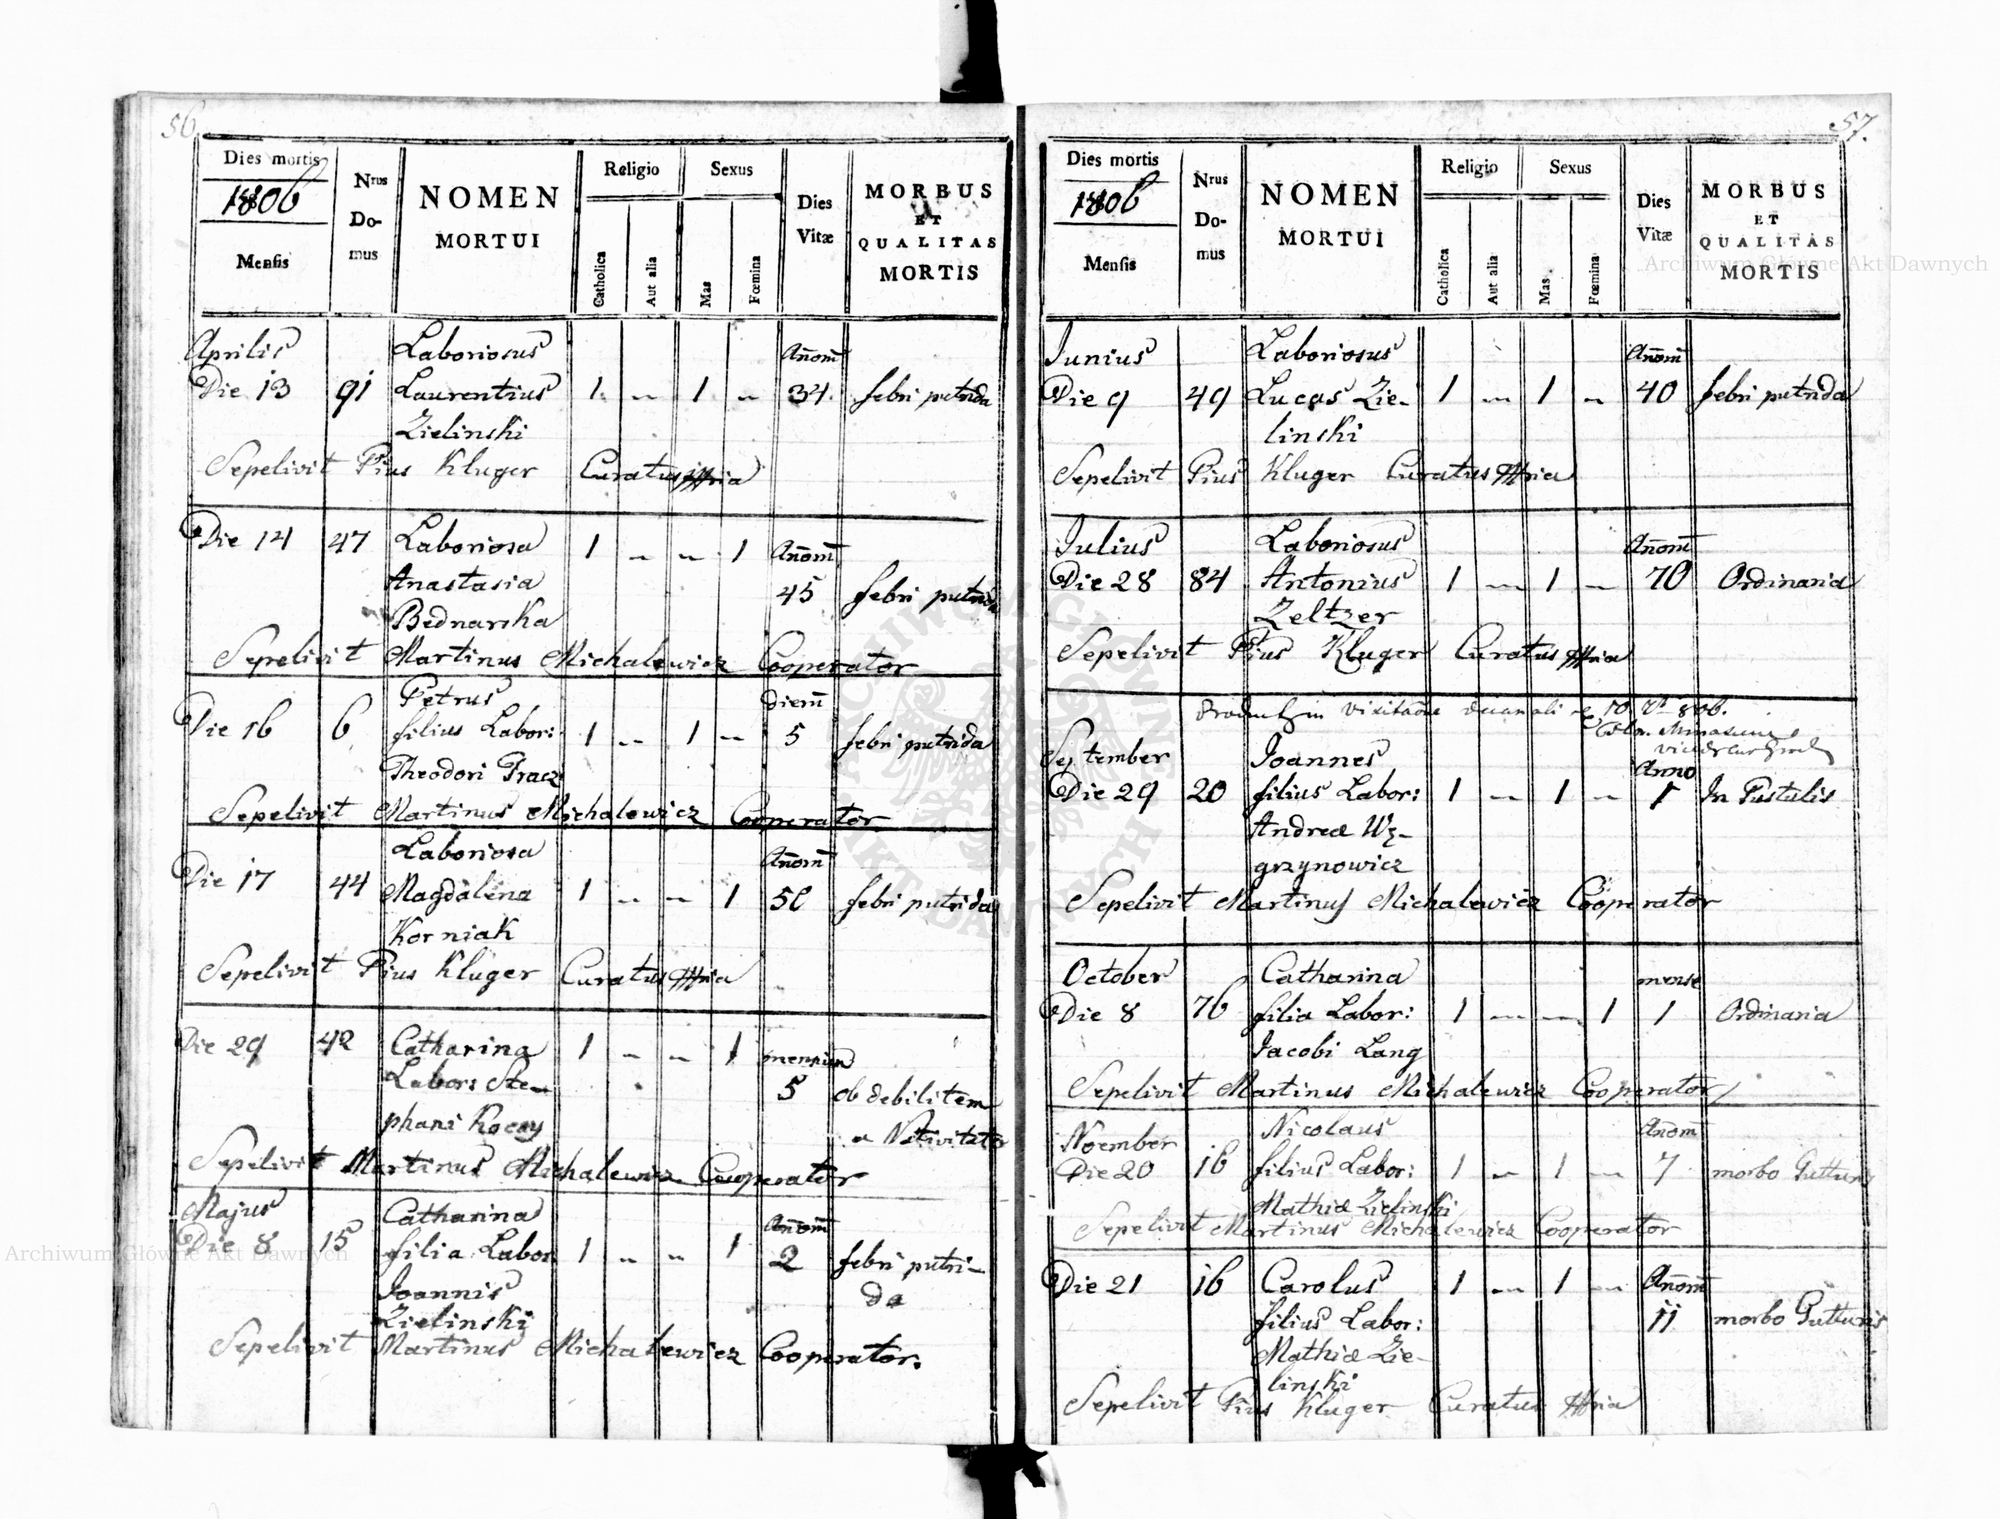 56.
Dies mortis
1806
Mensis
Nrus Domus
NOMEN MORTUI
Religio
Catholica
Aut alia
Sexus
Mas
Fœmina
Dies Vitæ
MORBUS ET QUALITAS MORTIS
Aprilis Laboriosus Anom̄
Die 13 91 Laurentius 1 – 1 – 34. febri putrida
Zielinski
Sepelivit Pius Kluger Curatus
Die 14 47 Laboriosa 1 – – 1 Anom̄
Anastasia 45 febri putrida
Bednarska
Sepelivit Martinus Michalewicz Cooperator
Petrus diem̄
Die 16 6 filius Labor: 1 – 1 – 5 febri putrida
Theodori Tracz
Sepelivit Martinus Michalewicz Cooperator
Laboriosa Anom̄
Die 17 44 Magdalena 1 – – 1 50 febri putrida
Korniak
Sepelivit Pius Kluger Curatus
Die 29 42 Catharina 1 – – 1 mensium
Labors Ste- 5 ob debilitem
phani a Nativitate
Sepelivit Martinus Michalewicz Cooperator
Majus Catharina Anom̄
Die 8 15 filia Labor. 1 – – 1 2 febri putri-
Joannis da
Zielinski
Sepelivit Martinus Michalewicz Cooperator.
57.
Dies mortis
1806
Mensis
Nrus Domus
NOMEN MORTUI
Religio
Catholica
Aut alia
Sexus
Mas
Fœmina
Dies Vitæ
MORBUS ET QUALITAS MORTIS
Junius Laboriosus Anom̄
Die 9 49 Lucas Zie- 1 – 1 – 40 febri putrida
linski
Sepelivit Pius Kluger Curatus
Julius Laboriosus Anom̄
Die 28 84 Antonius 1 – 1 – 70 Ordinaria
Zeltzer
Sepelivit Pius Kluger Curatus
in visitatione decanali 10 806.
September Joannes Anno
Die 29 20 filius Labor: 1 – 1 – 1 In Pustulis
Andreæ Wę-
grzynowicz
Sepelivit Martinus Michalewicz Cooperator
October Catharina mense
Die 8 76 filia Labor: 1 – – 1 1 Ordinaria
Jacobi Lang
Sepelivit Martinus Michalewicz Cooperator
Noember Nicolaus Anom̄
Die 20 16 filius Labor: 1 – 1 – 7 morbo Gutturis
Mathiæ Zielinski
Sepelivit Martinus Michalewicz Cooperator
Die 21 16 Carolus 1 – 1 – Anom̄
filius Labor: 11 morbo Gutturis
Mathiæ Zie-
linski
Sepelivit Pius Kluger Curatus
Archiwum Główne Akt Dawnych
Archiwum Główne Akt Dawnych
ARCHIWUM GŁÓWNE AKT DAWNYCH